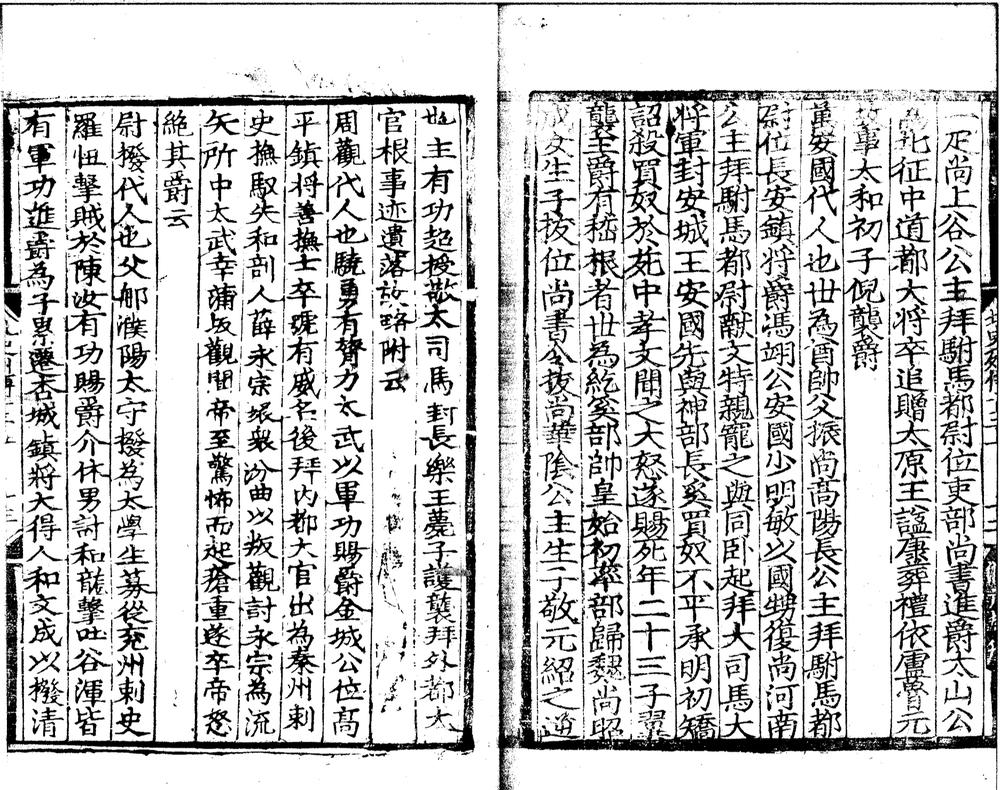 疋尚上谷公主拜駙馬都尉位吏部尚書進爵太山公
北征中道都大将卒追贈太原王諡康葬禮依盧魯元
故事太和初子倪襲爵
萬安國代人也世為酋帥父振尚高陽長公主拜駙馬都
尉位長安鎮将爵馮翊公安國少明敏以國甥復尚河南
公主拜駙馬都尉献文特親寵之與同卧起拜大司馬大
将軍封安城王安國先與神部長奚買奴不平承明初矯
詔殺買奴於苑中孝文聞之大怒遂賜死年二十三子翼
襲王爵有嵇根者世為紇奚部帥皇始初率部歸魏尚昭
成女生子拔位尚書令拔尚華陰公主生子敬元紹之逆
也主有功超授敬大司馬封長樂王薨子護襲拜外都大
官根事迹遺落故略附云
周觀代人也驍勇有膂力太武以軍功賜爵金城公位高
平鎮将善撫士卒號有威名後拜内都大官出為秦州刺
史撫馭失和部人薛永宗聚衆汾曲以叛觀討永宗為流
矢所中太武幸蒲坂觀聞帝至驚怖而起瘡重遂卒帝怒
絶其爵云
尉撥代人也父郍濮陽太守撥為太學生募從兖州刺史
羅忸擊賊於陳汝有功賜爵介休男討和龍擊吐谷渾皆
有軍功進爵為子累遷杏城鎮将大得人和文成以撥清